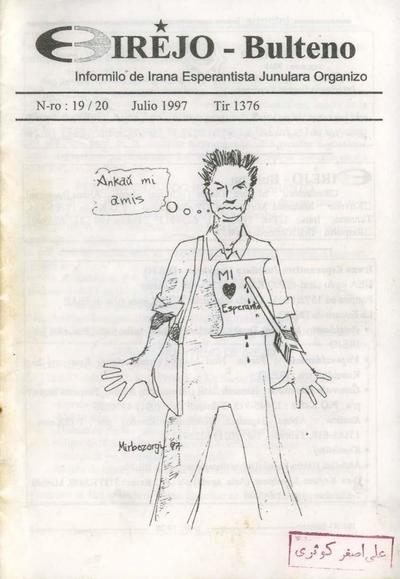 IREJO - Bulteno
Informilo de Irana Esperantista Junulara Organizo
N-ro : 19 / 20 Julio 1997 Tir 1376
Ankaŭ mi
amis
MI
♥
Esperanto
Mirbozorgi 97
علی اصغر کوثری